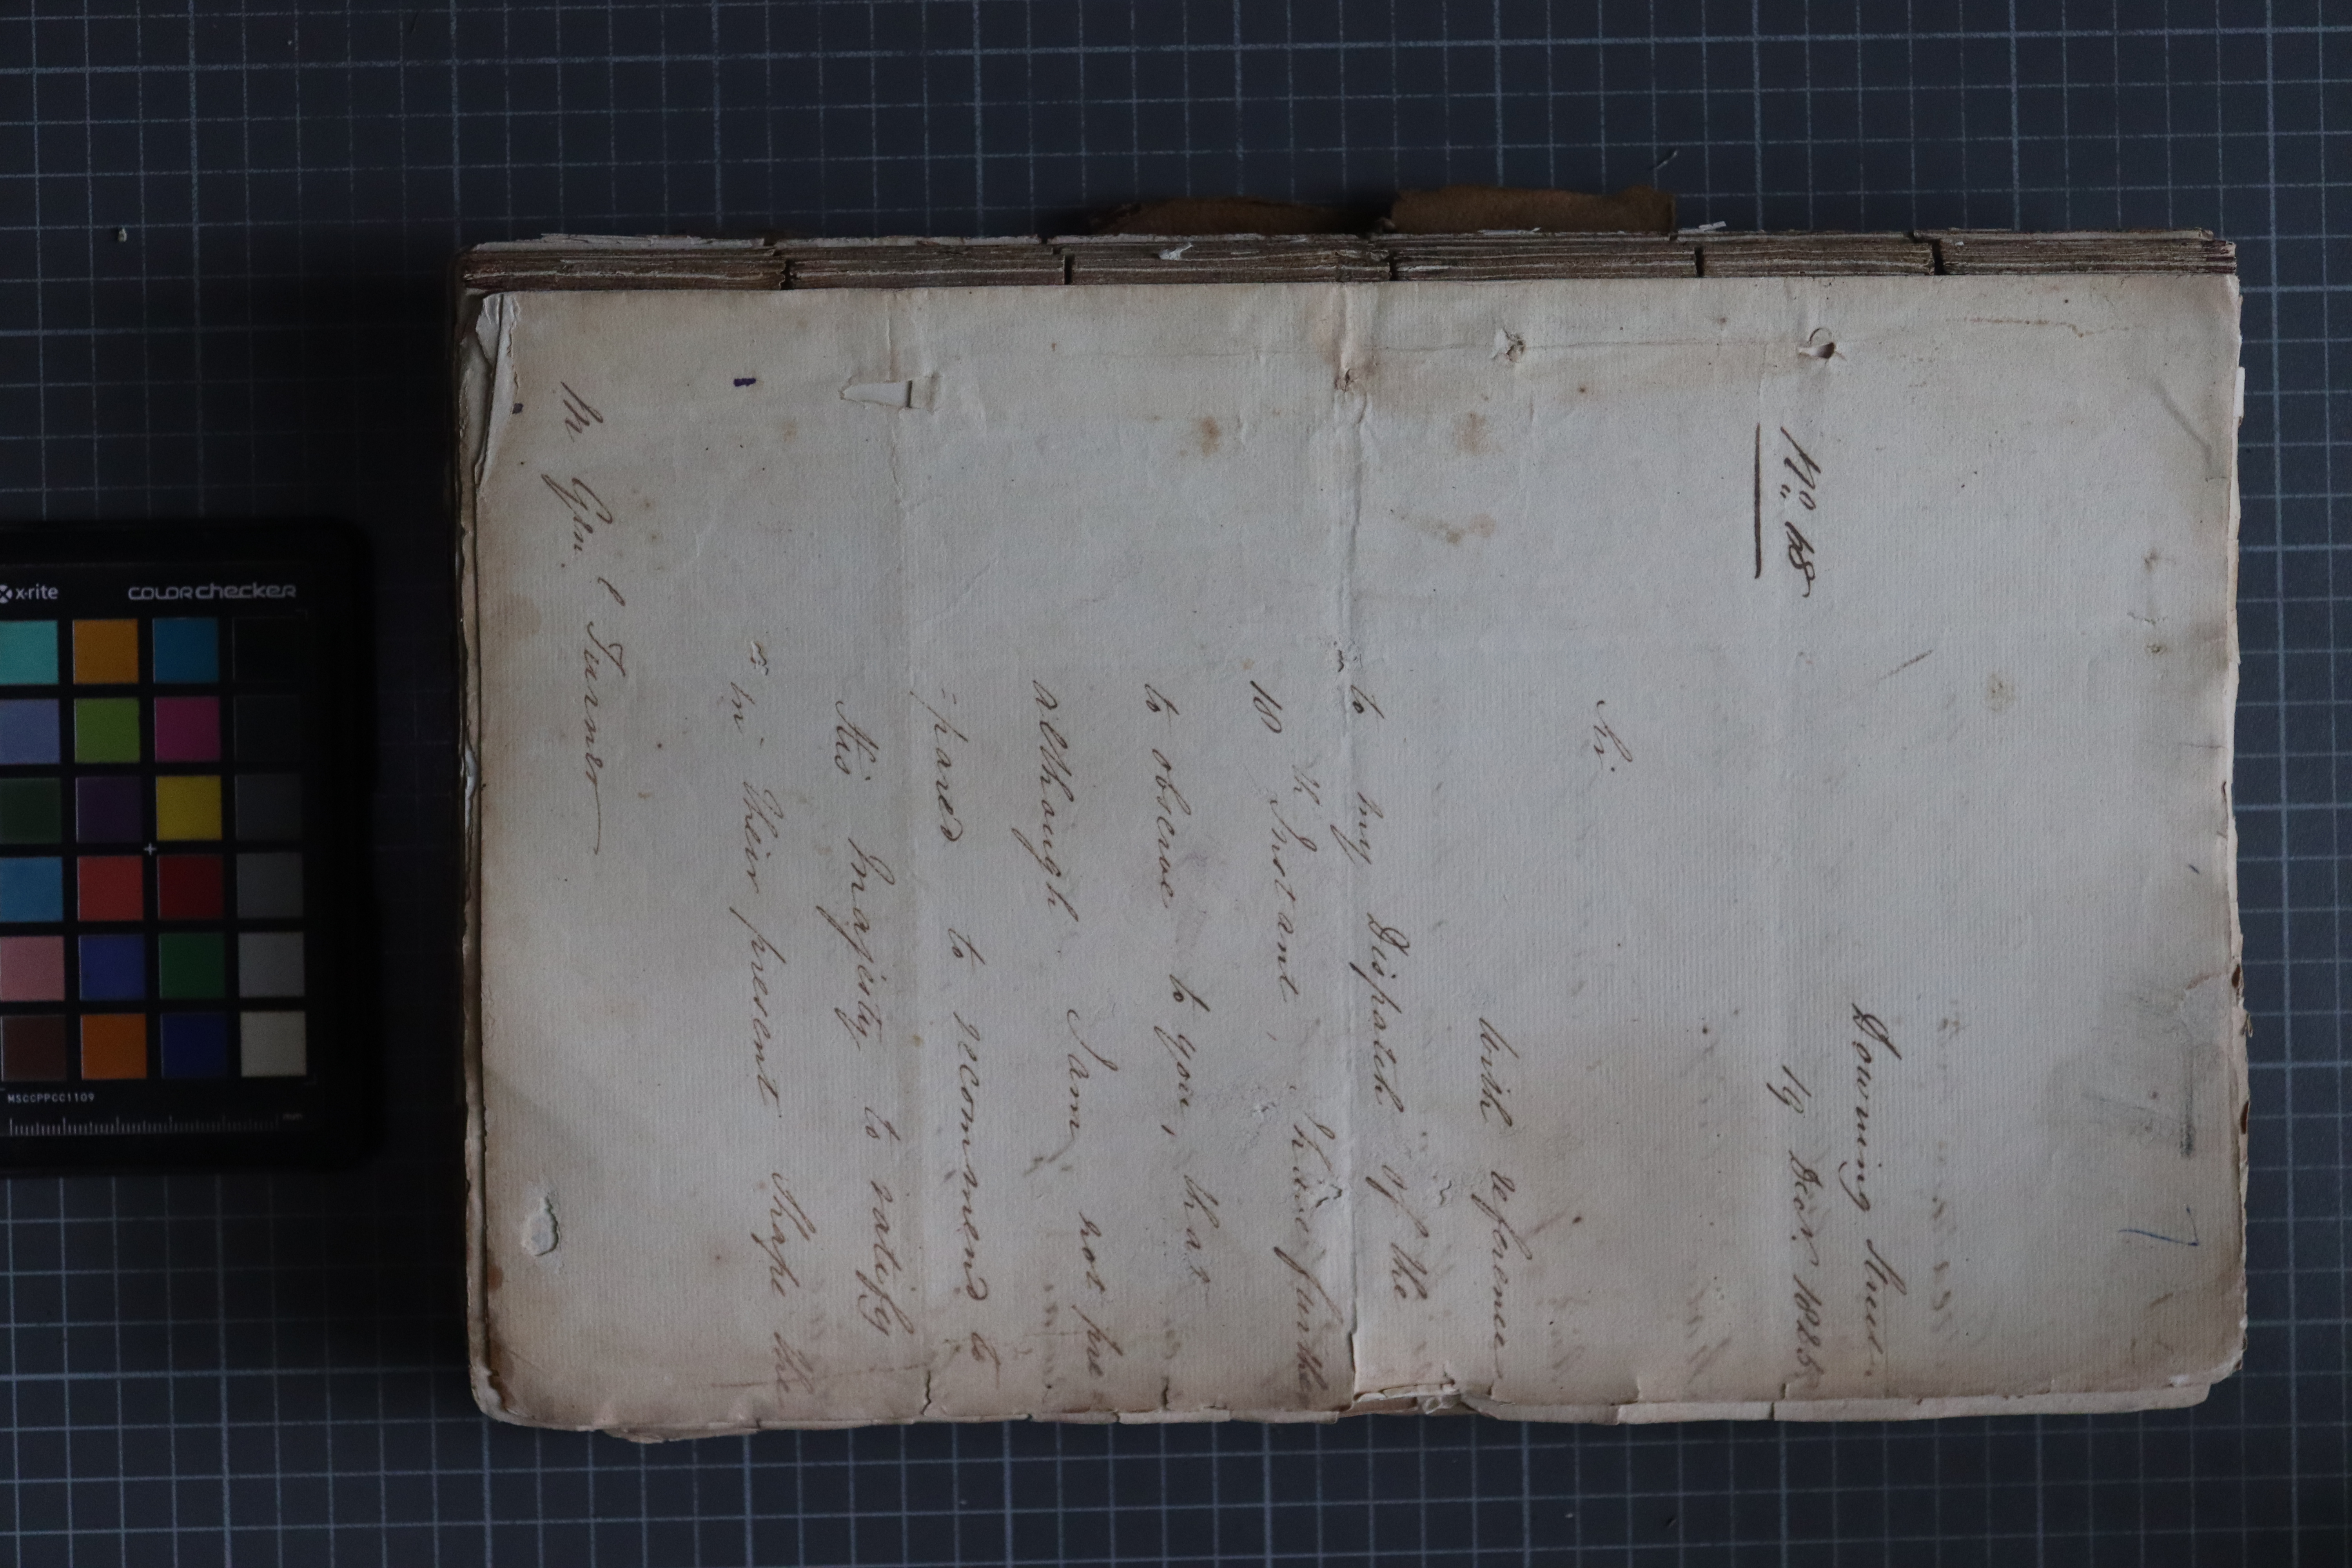 7
Downing Street
No. 48
19 Decr. 1825
Sir
With reference
to my Dispatch of the
18th Instant, I have further
to observe to you, that
although I am not pre
=pared to recommend to
His Majesty to ratify
in their present Shape the
M Genl Turner
x-rite
colorchecker
MSCCPPCC1109